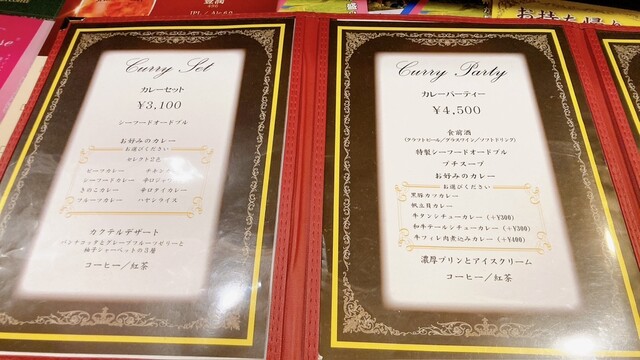 Curry Set
カレーセット
¥3,100
シーフードオードブル
お好みのカレー
お選びください
セレクト2色
ビーフカレー
シーフードカレー
きのこカレー 辛口タイカレー
フルーツカレー ハヤシライス
カクテルデザート
パンナコッタとグレープフルーツゼリーと
柚子シャーベットの3層
コーヒー／紅茶
Curry Party
カレーパーティー
¥4,500
食前酒
(クラフトビール／グラスワイン／ソフトドリンク)
特製シーフードオードブル
プチスープ
お好みのカレー
お選びください
黒豚カツカレー
帆立貝カレー
牛タンシチューカレー (+¥300)
和牛テールシチューカレー (+¥300)
牛フィレ肉煮込みカレー (+¥400)
濃厚プリンとアイスクリーム
コーヒー／紅茶